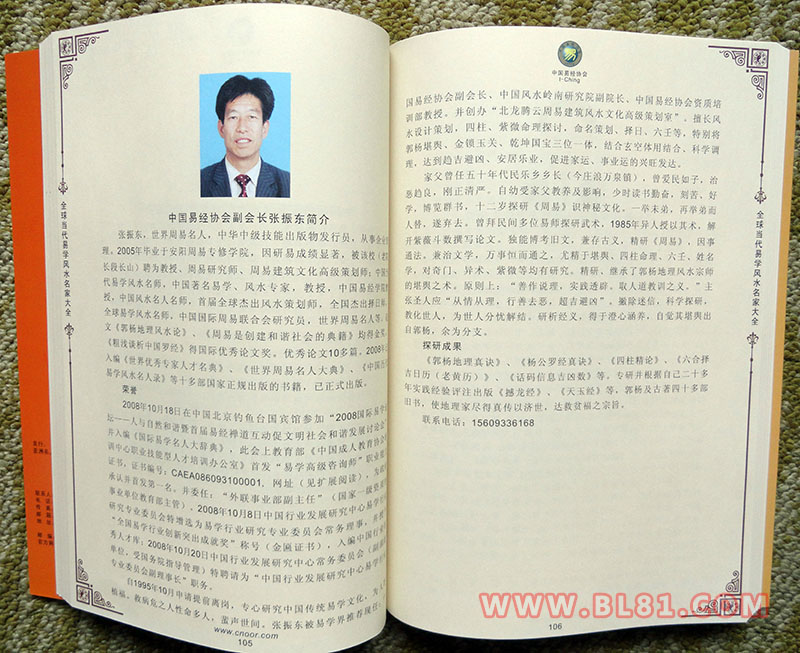 全球当代易学风水名家大全
中国易经协会副会长张振东简介
张振东，世界周易名人，中华中级技能出版物发行员，从事企业
理。2005年毕业于安阳周易专修学院，因研易成绩显著，被该校（老
长段长山）聘为教授、周易研究师、周易建筑文化高级策划师；中国
代易学风水名师，中国著名易学、风水专家，教授，中国易经学院
授，中国风水名人名师，首届全球杰出风水策划师，全国杰出择日师，
全球易学风水名师，中国国际周易联合会研究员，世界周易名人等。论
文《郭杨地理风水论》、《周易是创建和谐社会的典籍》均得金奖，
《粗浅谈析中国罗经》得国际优秀论文奖。优秀论文10多篇。2008年
入编《世界优秀专家人才名典》、《世界周易名人大典》、《中国
易学风水名人录》等十多部国家正规出版的书籍，已正式出版。
荣誉
2008年10月18日在中国北京钓鱼台国宾馆参加“2008国际易学
坛——人与自然和谐暨首届易经禅道互动促文明社会和谐发展讨论会”
并入编《国际易学名人大辞典》，此会上教育部《中国成人教育协会
训中心职业技能型人才培训办公室》首发“易学高级咨询师”职业
证书，证书编号：CAEA086093100001，网址（见扩展阅读），为
承认并首发第一名。并委任：“外联事业部副主任”（国家一级
事业单位教育部主管）。2008年10月8日中国行业发展研究中心易学行
研究专业委员会特增选为易学行业研究专业委员会常务理事，并授
“全国易学行业创新突出成就奖”称号（金匾证书），入编中国行业
秀人才库；2008年10月20日中国行业发展研究中心常务委员会（副
单位，受国务院指导管理）特聘请为“中国行业发展研究中心易学行
专业委员会副理事长”职务。
自1995年10月申请提前离岗，专心研究中国传统易学文化，为人
植福。救病危之人性命多人，蜚声世间。张振东被易学界推荐现任：
www.cnoor.com
105
中国易经协会
I-Ching
国易经协会副会长、中国风水岭南研究院副院长、中国易经协会资质培
训部教授。并创办“北龙腾云周易建筑风水文化高级策划室”。擅长风
水设计策划，四柱、紫微命理探讨，命名策划、择日、六壬等，特别将
郭杨堪舆、金锁玉关、乾坤国宝三位一体，结合玄空体用结合、科学调
理，达到趋吉避凶、安居乐业，促进家运、事业运的兴旺发达。
家父曾任五十年代民乐乡乡长（今庄浪万泉镇），曾爱民如子，治
恶趋良，刚正清严。自幼受家父教养及影响，少时读书勤奋，刻苦、好
学，博览群书，十二岁探研《周易》识神秘文化。一举未弟，再举弟而
人替，遂弃去。曾拜民间多位易师探研武术，1985年异人授以其术，解
开紫薇斗数撰写论文。独能博考旧文，兼存古义，精研《周易》，因事
通法。兼治文学，万事恒而通之，尤精于堪舆、四柱命理、六壬、姓名
学，对奇门、异术、紫微等均有研究。精研、继承了郭杨地理风水宗师
的堪舆之术。原则上：“善作说理，实践透辟，取人道教训之义。”主
张圣人应“从情从理，行善去恶，超吉避凶”。撇除迷信，科学探研，
教化世人，为世人分忧解结。研析经义，得于澄心涵养，自觉其堪舆出
自郭杨，余为分支。
探研成果
《郭杨地理真诀》、《杨公罗经真诀》、《四柱精论》、《六合择
吉日历（老黄历）》、《话码信息吉凶数》等。专研并根据自己二十多
年实践经验评注出版《撼龙经》、《天玉经》等，郭杨及古著四十多部
旧书，使地理家尽得真传以济世，达救贫福之宗旨。
联系电话：15609336168
全球当代易学风水名家大全
106
WWW.BL81.COM